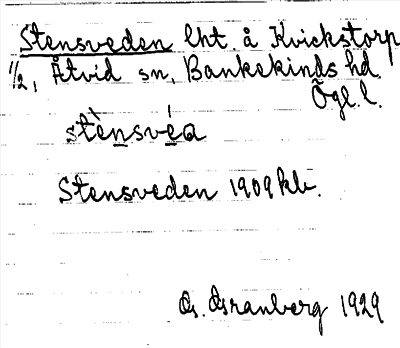 Stensveden lht. å Kvickstorp
1/2, Åtvid sn, Bankekinds hd.
Ögl. l.
stènsve̍a
Stensveden 1909 kb.
1929